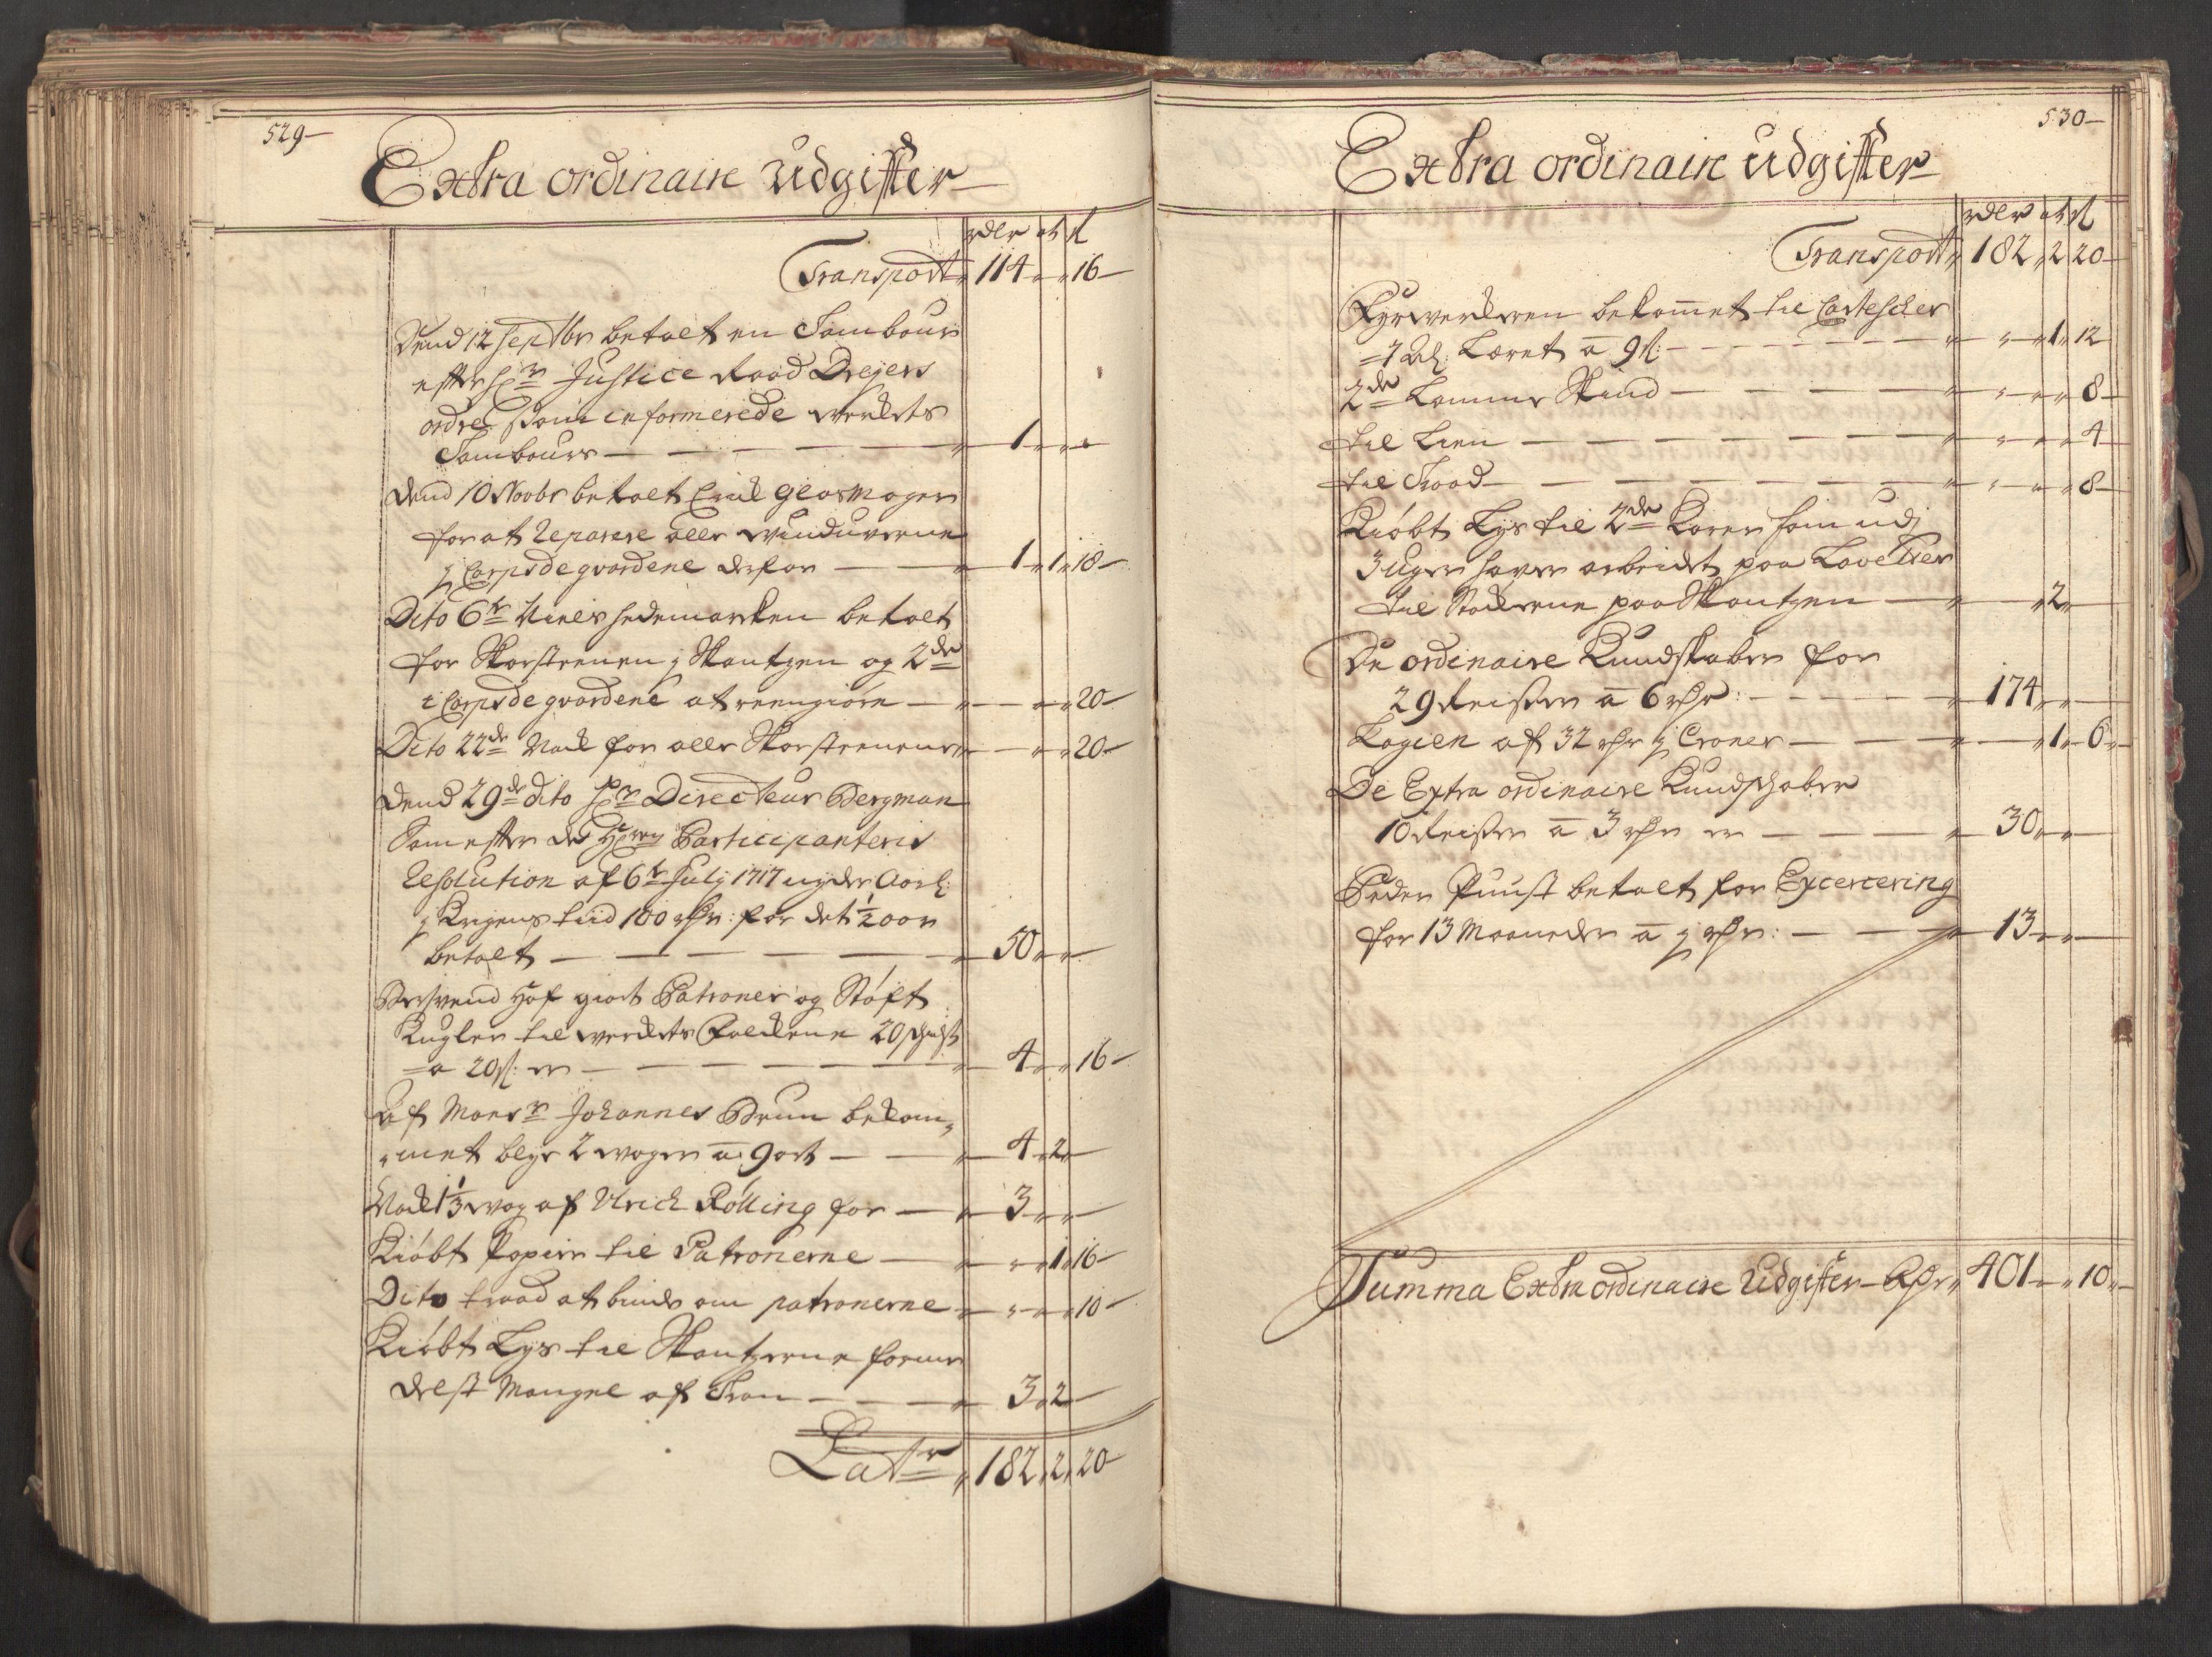 529
Extra ordinaire Udgifter
rdlr ort ß
Transport 114 " 16
Dend 12 Septbr betalt en Tambour
efter Hr Justice Raad Drejers
ordre som informerede werkets
Tambours 1 " "
Dend 10 Novbr betalt Glasmager
for at reparere alle winduerne
j Corps de gvardene derfor 1 1 18
Dito 6te Niels Hedemarken betalt
for Skorstenen j Skantzen og 2de
i Corps de gvardene at reengiøre " " 20
Dito 22de Nock for alle Skorstenene " " 20
Dend 29de dito Hr Directeur Bergman
Som efter de Hrer Participanteris
Resolution af 6te July 1717 nyder Aarl:
j Krigens tiid 100 rdr: for det ½ aar
betalt 50 " "
Hof giort Patroner og Støft
Kugler til werkets Folkene 20
a 20 ß: er 4 " 16
Af Monsr Johannes Brun bekom„
„met blye 2 woger a 9 ort 4 2 "
Nock 1⅓ wog af Ulrich Rølling for 3 " "
Kiøbt Papiir til Patronerne " 1 16
Dito traad at binde om patronerne " " 10
Kiøbt Lys til Skantzerne formedelst
Mangel af Tran 3 2 "
Latr 182 2 20
530
Extra ordinaire Udgifter
rdlr ort ß
Transport 182 2 20
Fyrwerkeren bekommet til Cartescher
7 Al: Læret a 9 ß: " 1 12
2de Lamme Skind " " 8
til Liim " " 4
til Traad " " 8
Kiøbt Lys til 2de Karer som udj
3 uger haver arbeidet paa Lavetter
til Støckerne paa Skantzen " 2 "
De ordinaire Kundskaber for
29 Reiser a 6 rdr: 174 " "
Lagien af 32 rdr j Croner " 1 6
De Extra ordinaire Kundskaber
10 Reiser a 3 rdr er 30 " "
Peder betalt for Excercering
for 13 Maaneder a j rdr: 13 " "
Summa Extra ordinaire Udgifter Rdr 401 " 10